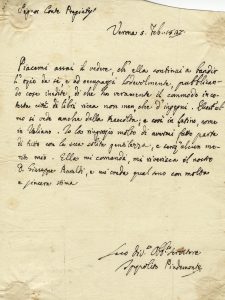 Sig.r Conte Pregiatiss.
Verona 5. Feb. 1827
Piacemi assai il vedere, ch'ella continui a bandir
l'ozio da sè ed occuparsi lodevolmente, pubblican-
do cose inedite, di che ha veramente il commodo in co-
testa città di libri ricca non men che d'ingegni.
mo si vede anche dalla raccolta, e così in latino, come
in Italiano. Io la ringrazio molto di avermi fatto parte
di tutto con la sua solita gentilezza, e
mente mio. Ella mi comandi, mi riverisca il nostro
D. Giuseppe Baraldi, e mi creda qual sono con molta
e sincera stima
Suo Div.mo Obb.mo Servitore
Ippolito Pindemonte